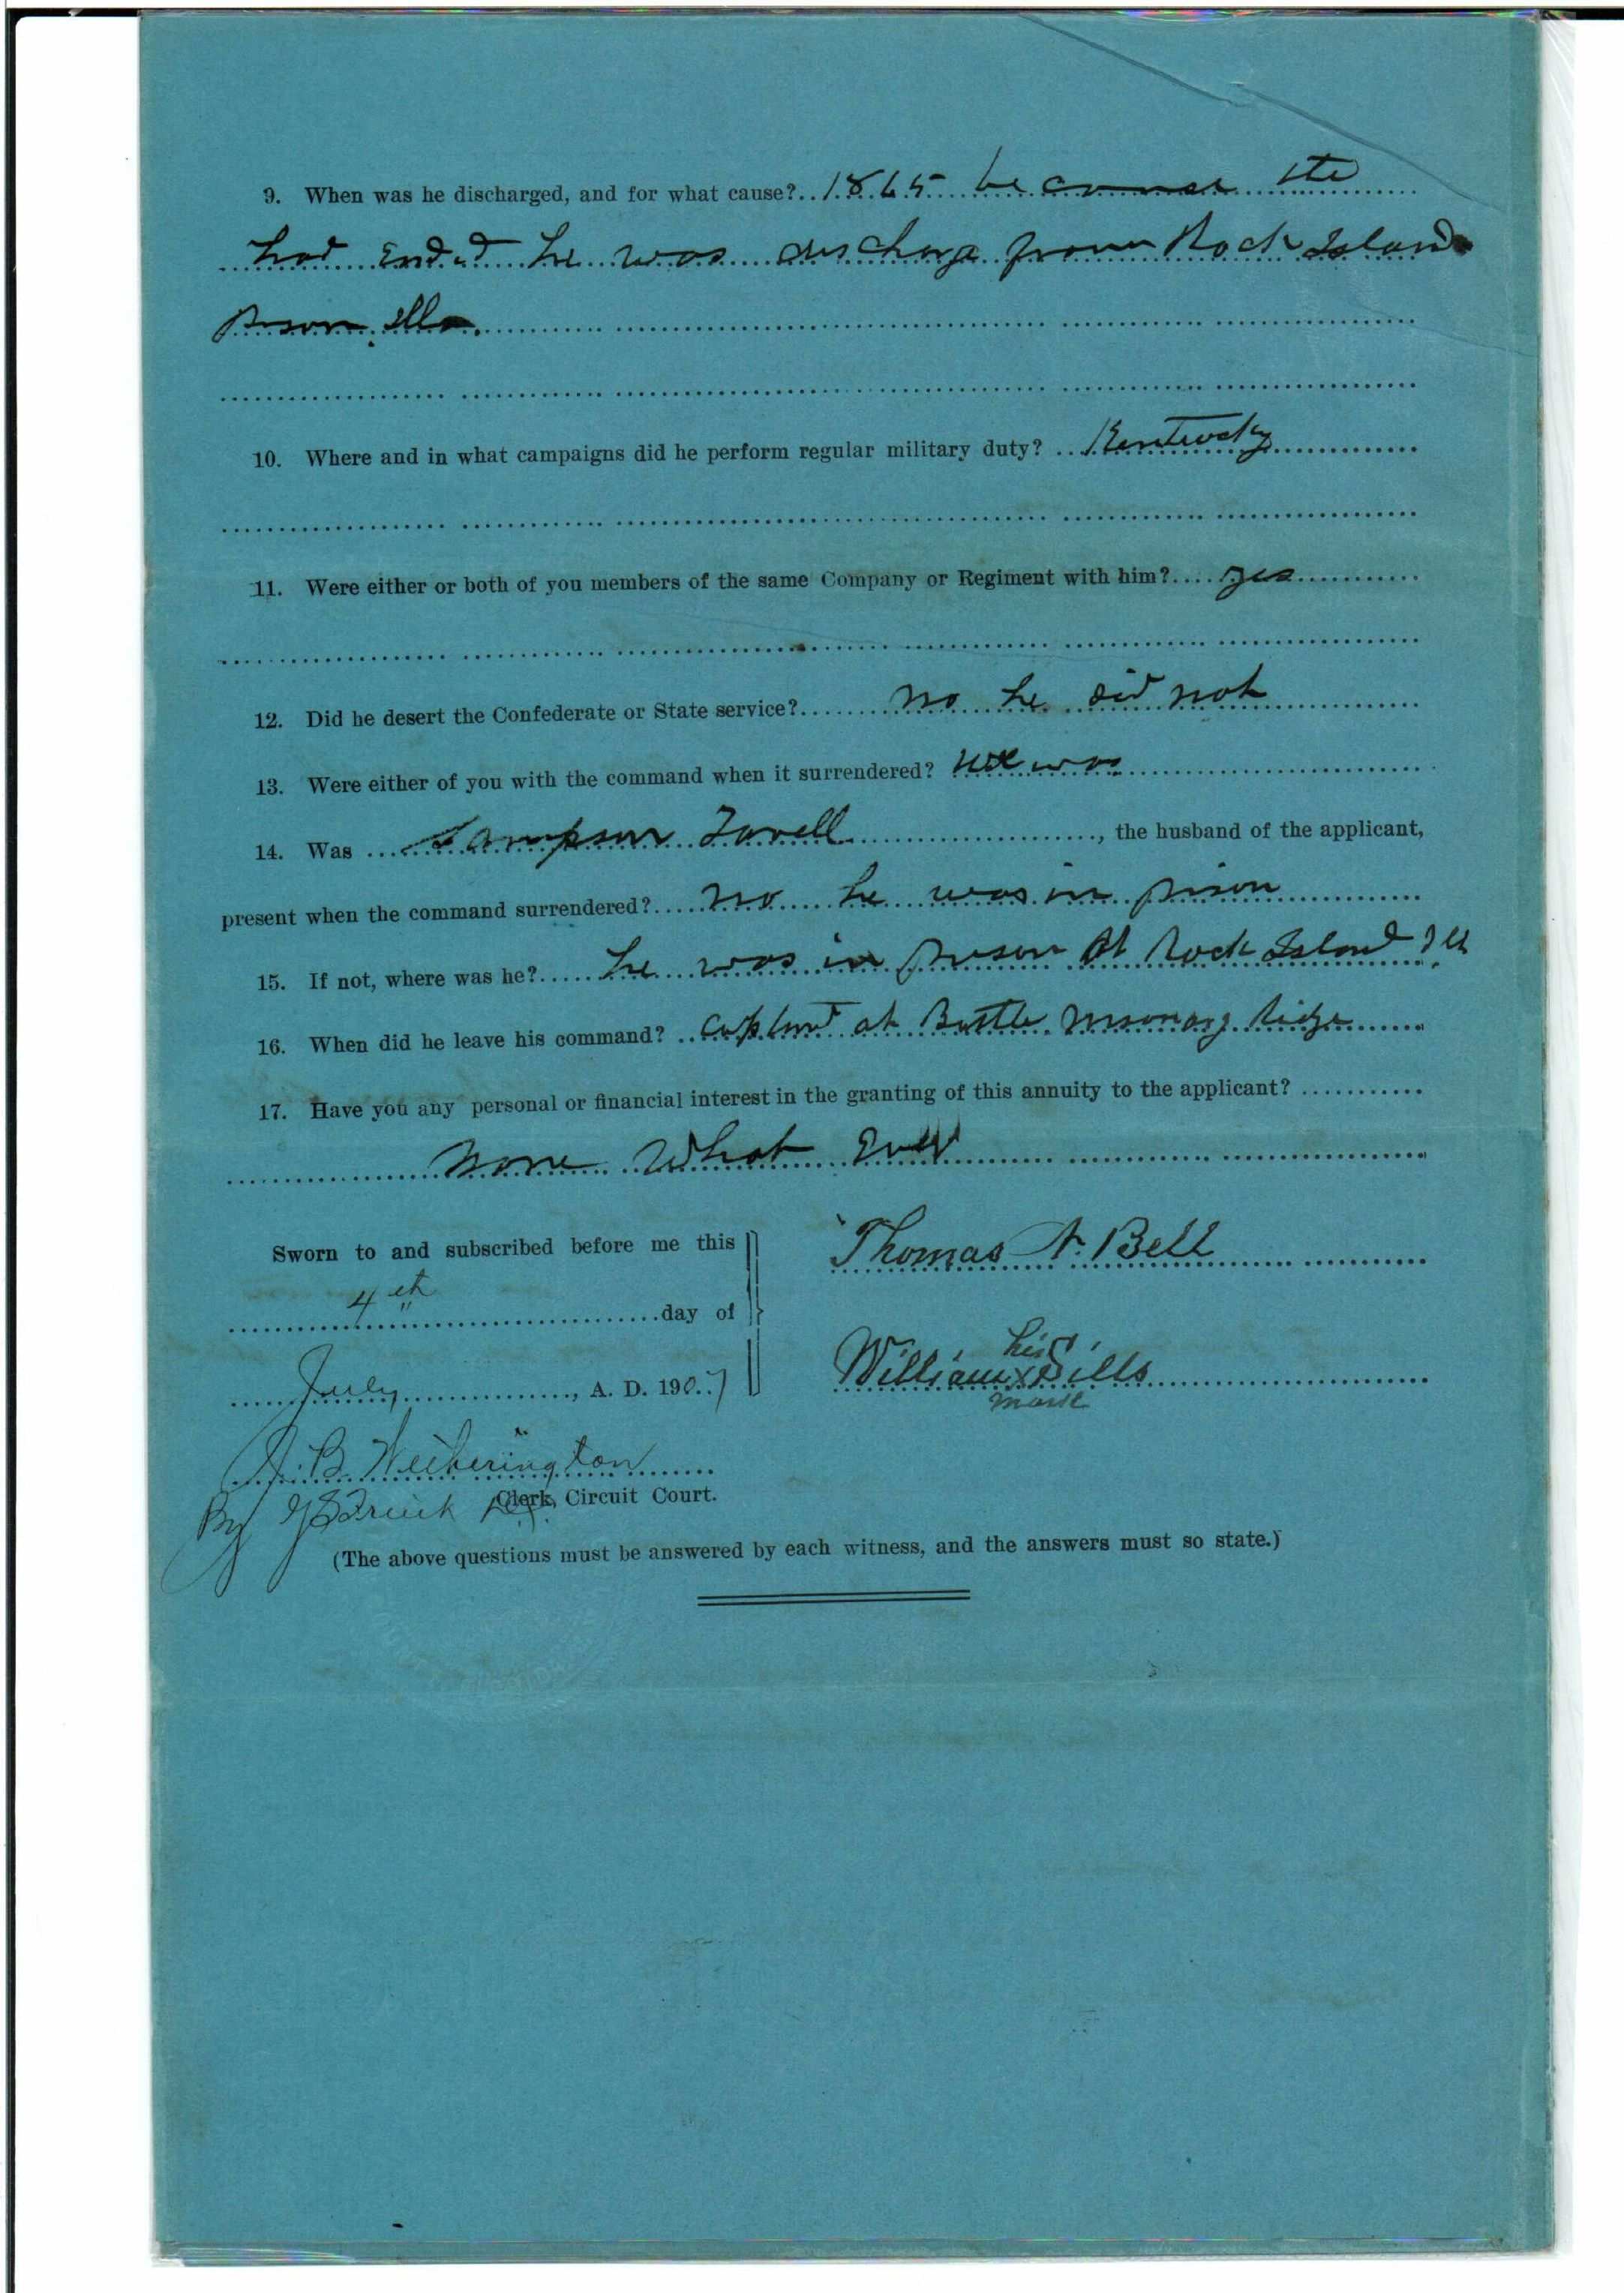 9. When was he discharged, and for what cause? 1865 because the
had Ended he was discharge from Rock Island
prison, Ills.
10. Where and in what campaigns did he perform regular military duty? Kentucky
11. Were either or both of you members of the same Company or Regiment with him? yes
12. Did he desert the Confederate or State service? no he did not
13. Were either of you with the command when it surrendered? we was
14. Was Sampson , the husband of the applicant,
present when the command surrendered? no he was in prison
15. If not, where was he? he was in prison At Rock Island Ill
16. When did he leave his command? at Battle ridge
17. Have you any personal or financial interest in the granting of this annuity to the applicant?
None What Ever
Sworn to and subscribed before me this
4th day of
July, A. D. 1907
Thomas A. Bell
his
William x Sills
mark
B. Wetherington
Clerk, Circuit Court.
By
(The above questions must be answered by each witness, and the answers must so state.)